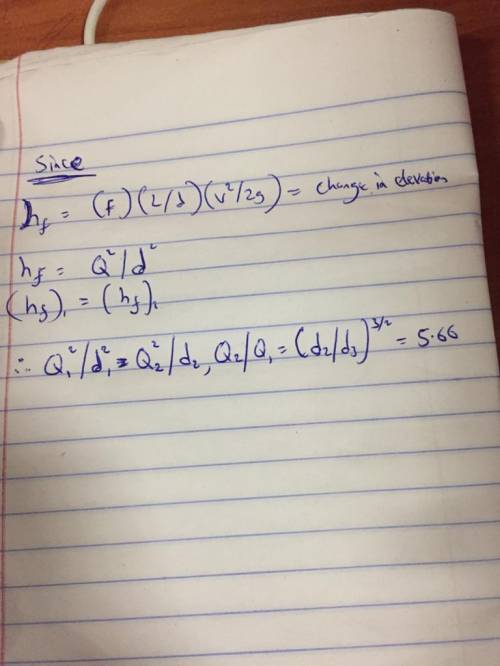 Since
h_f = (f)(L/d)(v²/2g) = change in elevation
h_f = Q²/d²
(h_f)₁ = (h_f)₂
∴ Q₁²/d₁² = Q₂²/d₂, Q₂/Q₁ = (d₂/d₃)^5/2 = 5.66